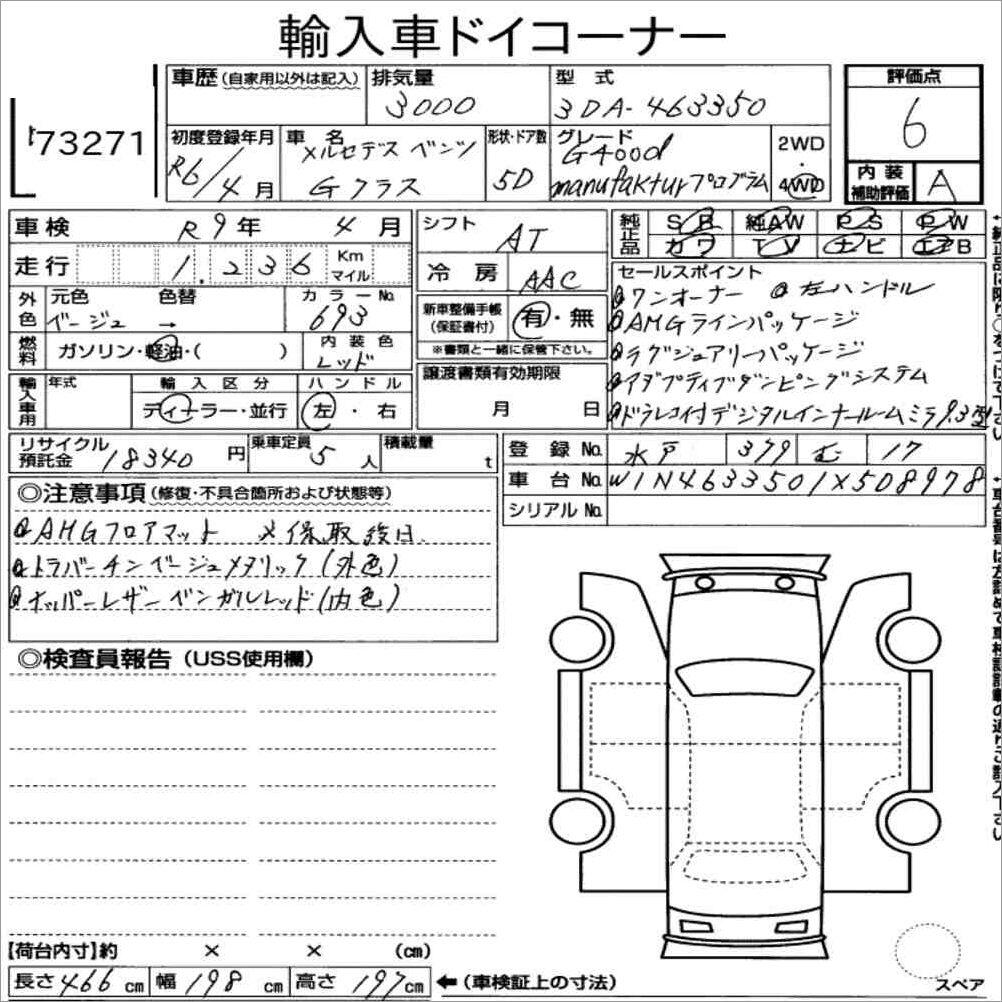 輸入車ドイコーナー
73271
車歴 (自家用以外は記入)
排気量
3000
型式
3DA-463350
評価点
6
内装補助評価
A
初度登録年月
R6/4月
車名
メルセデス ベンツ
Gクラス
形状・ドア数
5D
グレード
G400d
manufakturプログラム
2WD
・
4WD
車検
R9年 4月
シフト
AT
純正品
SR 純AW PS PW
カワ TV ナビ エアB
走行
1.236
Km
マイル
冷房
AAC
セールスポイント
ワンオーナー 左ハンドル
AMGラインパッケージ
ラグジュアリーパッケージ
アダプティブダンピングシステム
ドラレコ付デジタルインナールームミラー9.3型
外色
元色
ベージュ
色替
→
カラーNo.
693
新車整備手帳
(保証書付)
有・無
※書類と一緒に保管下さい。
燃料
ガソリン・軽油・( )
内装色
レッド
譲渡書類有効期限
月 日
輸入車用
年式
輸入区分
ディーラー・並行
ハンドル
左・右
リサイクル預託金
18340円
乗車定員
5人
積載量
t
登録No.
水戸 379 む 17
車台No.
W1N4633501X508978
シリアルNo.
◎注意事項 (修復・不具合箇所および状態等)
AMGフロアマット ※保取後日
トラバーチンベージュメタリック(外色)
ナッパーレザーベンガルレッド(内色)
◎検査員報告 (USS使用欄)
【荷台内寸】約 × × (cm)
長さ466cm 幅198cm 高さ197cm ←(車検証上の寸法)
スペア